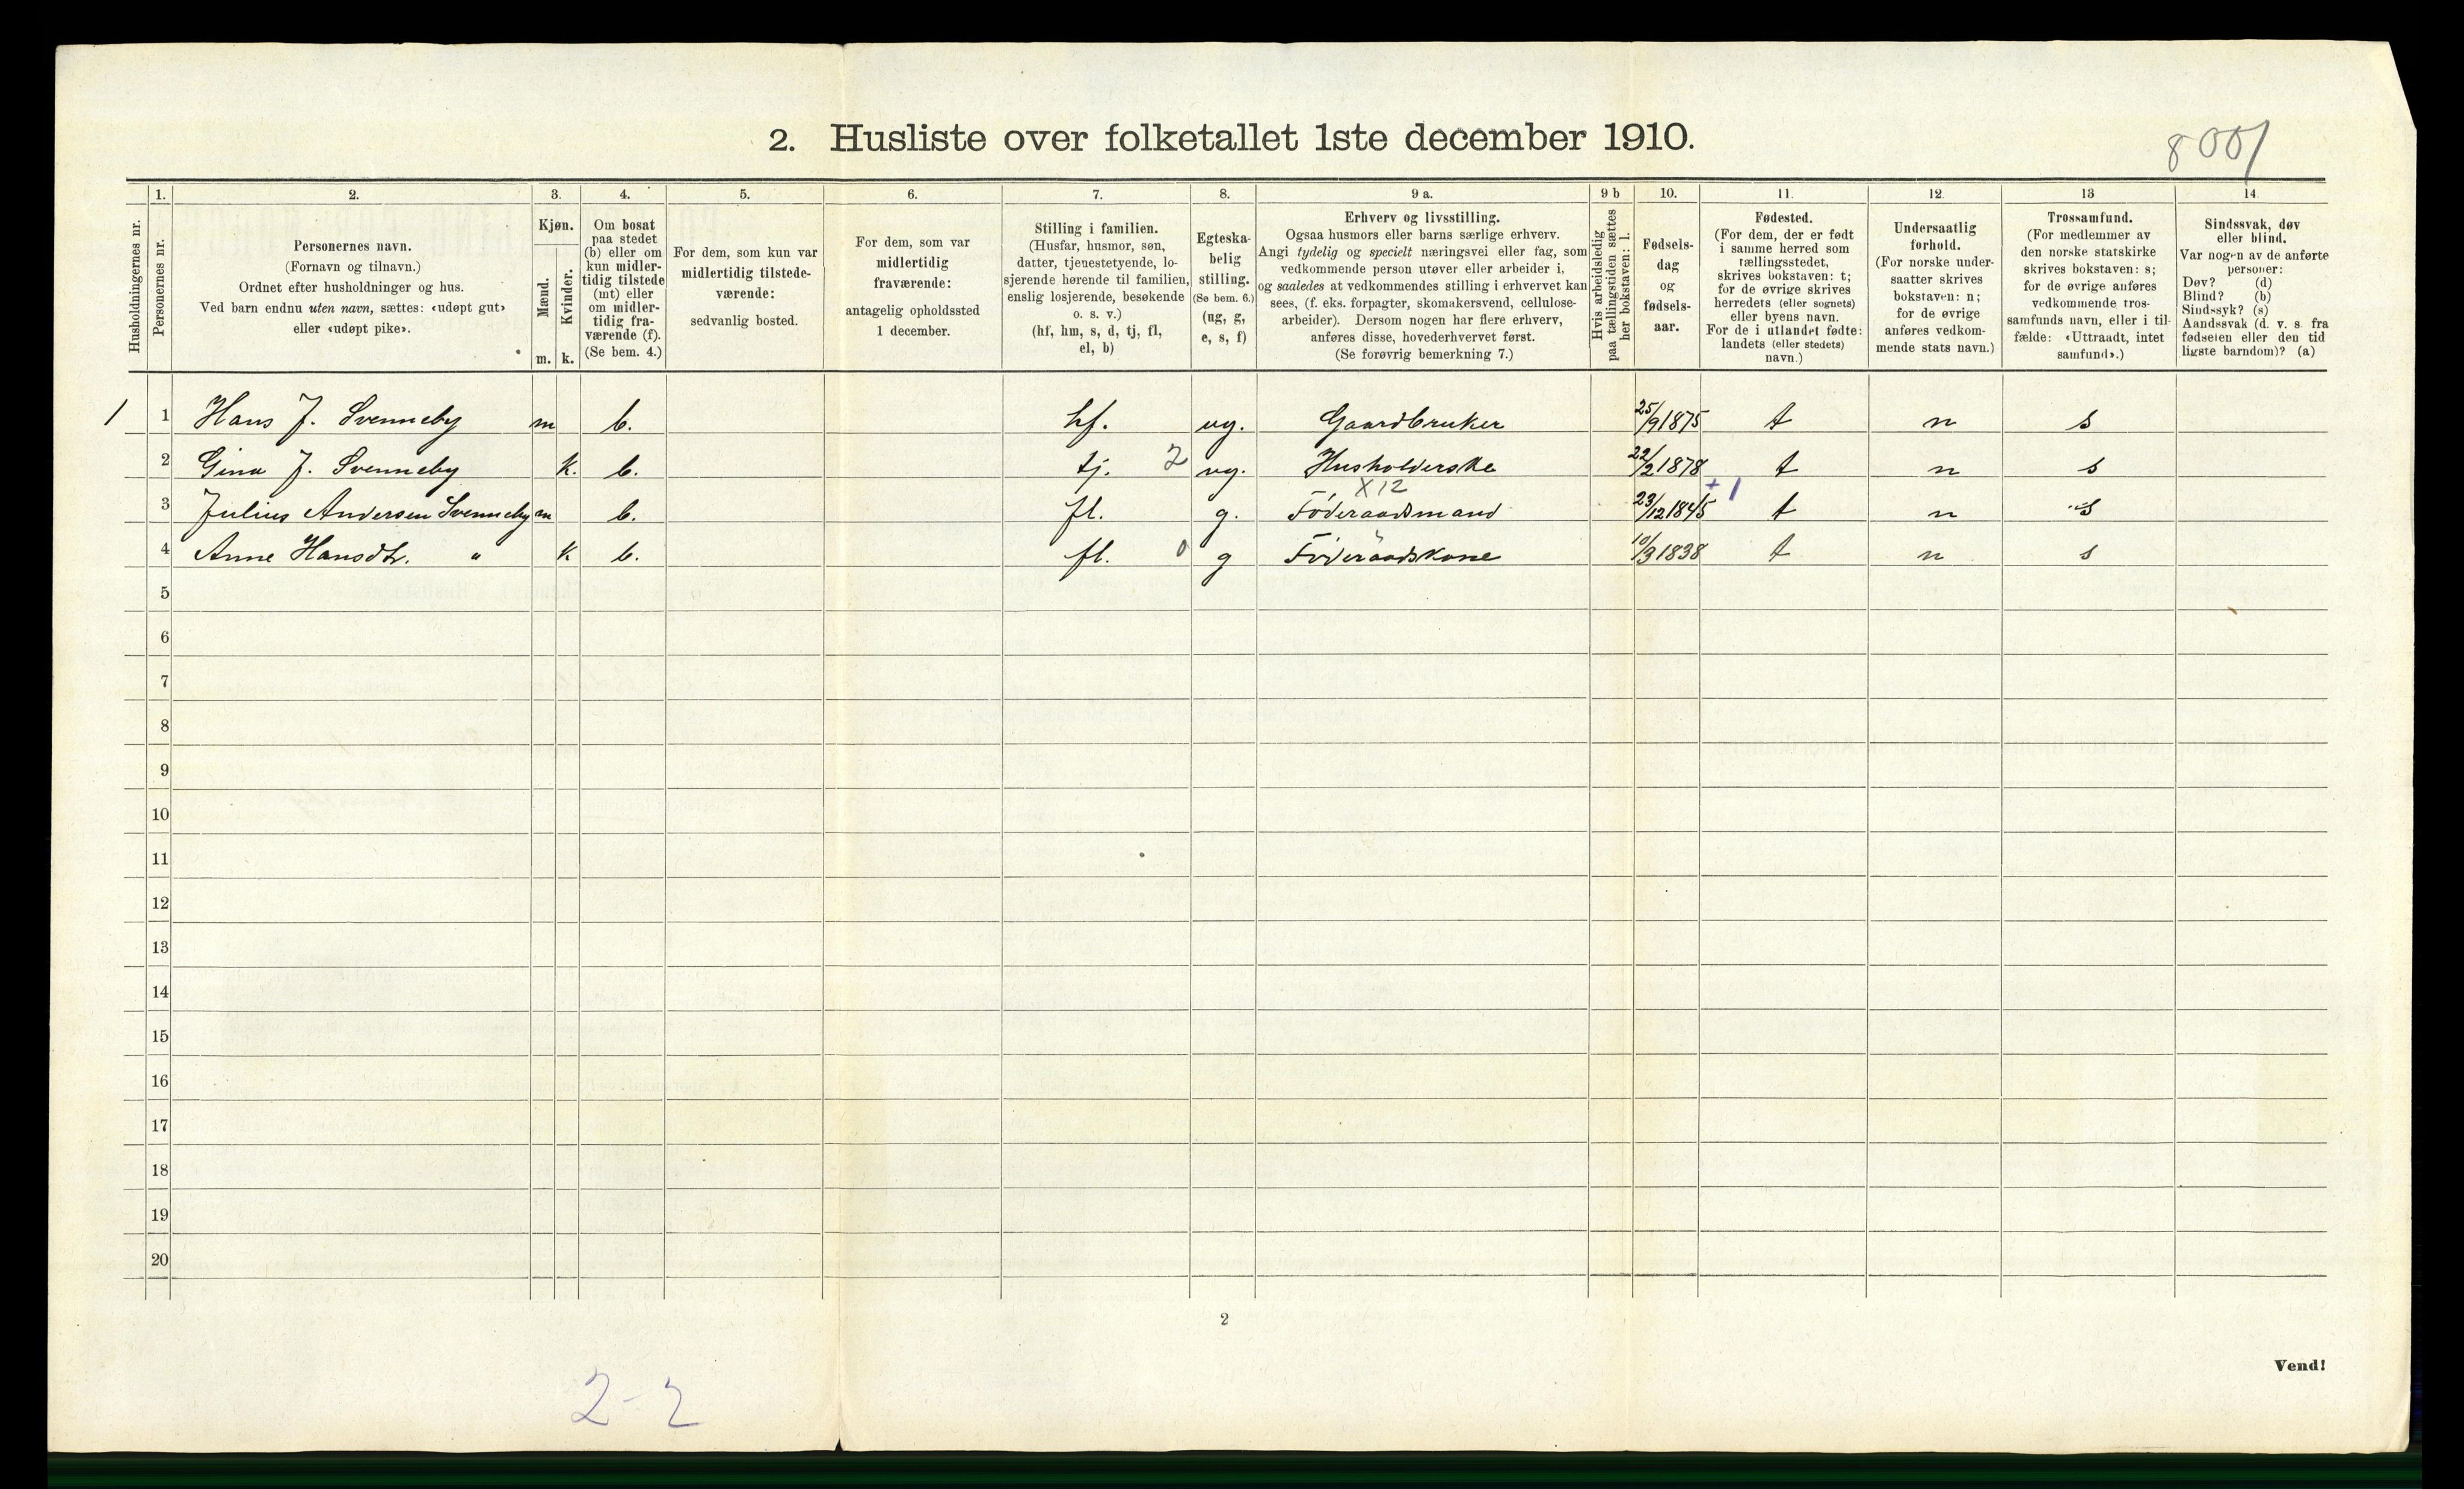 2. Husliste over folketallet 1ste december 1910.
8001
1. 2. 3. 4. 5. 6. 7. 8. 9 a. 9 b 10. 11. 12. 13 14.
Husholdningernes nr.
Personernes nr.
Personernes navn.
(Fornavn og tilnavn.)
Ordnet efter husholdninger og hus.
Ved barn endnu uten navn, sættes: «udøpt gut»
eller «udøpt pike».
Kjøn.
Mænd.
Kvinder.
m. k.
Om bosat
paa stedet
(b) eller om
kun midler-
tidig tilstede
(mt) eller
om midler-
tidig fra-
værende (f).
(Se bem. 4.)
For dem, som kun var
midlertidig tilstede-
værende:
sedvanlig bosted.
For dem, som var
midlertidig
fraværende:
antagelig opholdssted
1 december.
Stilling i familien.
(Husfar, husmor, søn,
datter, tjenestetyende, lo-
sjerende hørende til familien,
enslig losjerende, besøkende
o. s. v.)
(hf, hm, s, d, tj, fl,
el, b)
Egteska-
belig
stilling.
(Se bem. 6.)
(ug, g,
e, s, f)
Erhverv og livsstilling.
Ogsaa husmors eller barns særlige erhverv.
Angi tydelig og specielt næringsvei eller fag, som
vedkommende person utøver eller arbeider i,
og saaledes at vedkommendes stilling i erhvervet kan
sees, (f. eks. forpagter, skomakersvend, cellulose-
arbeider). Dersom nogen har flere erhverv,
anføres disse, hovederhvervet først.
(Se forøvrig bemerkning 7.)
Hvis arbeidsledig
paa tællingstiden sættes
her bokstaven: l.
Fødsels-
dag
og
fødsels-
aar.
Fødested.
(For dem, der er født
i samme herred som
tællingsstedet,
skrives bokstaven: t;
for de øvrige skrives
herredets (eller sognets)
eller byens navn.
For de i utlandet fødte:
landets (eller stedets)
navn.)
Undersaatlig
forhold.
(For norske under-
saatter skrives
bokstaven: n;
for de øvrige
anføres vedkom-
mende stats navn.)
Trossamfund.
(For medlemmer av
den norske statskirke
skrives bokstaven: s;
for de øvrige anføres
vedkommende tros-
samfunds navn, eller i til-
fælde: «Uttraadt, intet
samfund».)
Sindssvak, døv
eller blind.
Var nogen av de anførte
personer:
Døv? (d)
Blind? (b)
Sindssyk? (s)
Aandssvak (d. v. s. fra
fødselen eller den tid
ligste barndom)? (a)
1 1 Hans J. Svenneby m b. hf. ug. Gaardbruker 25/9 1875 t n s
2 Gina J. Svenneby k. b. tj. 2 ug. Husholderske 22/2 1878 t n s
X 12 + 1
3 Julius Andersen Svenneby m b. fl. g. Föderaadsmand 23/12 1845 t n s
4 Anne Hansdtr. " k b. fl. 0 g Föderaadskone 10/3 1838 t n s
5
6
7
8
9
10
11
12
13
14
15
16
17
18
19
20
2
Vend!
2-2